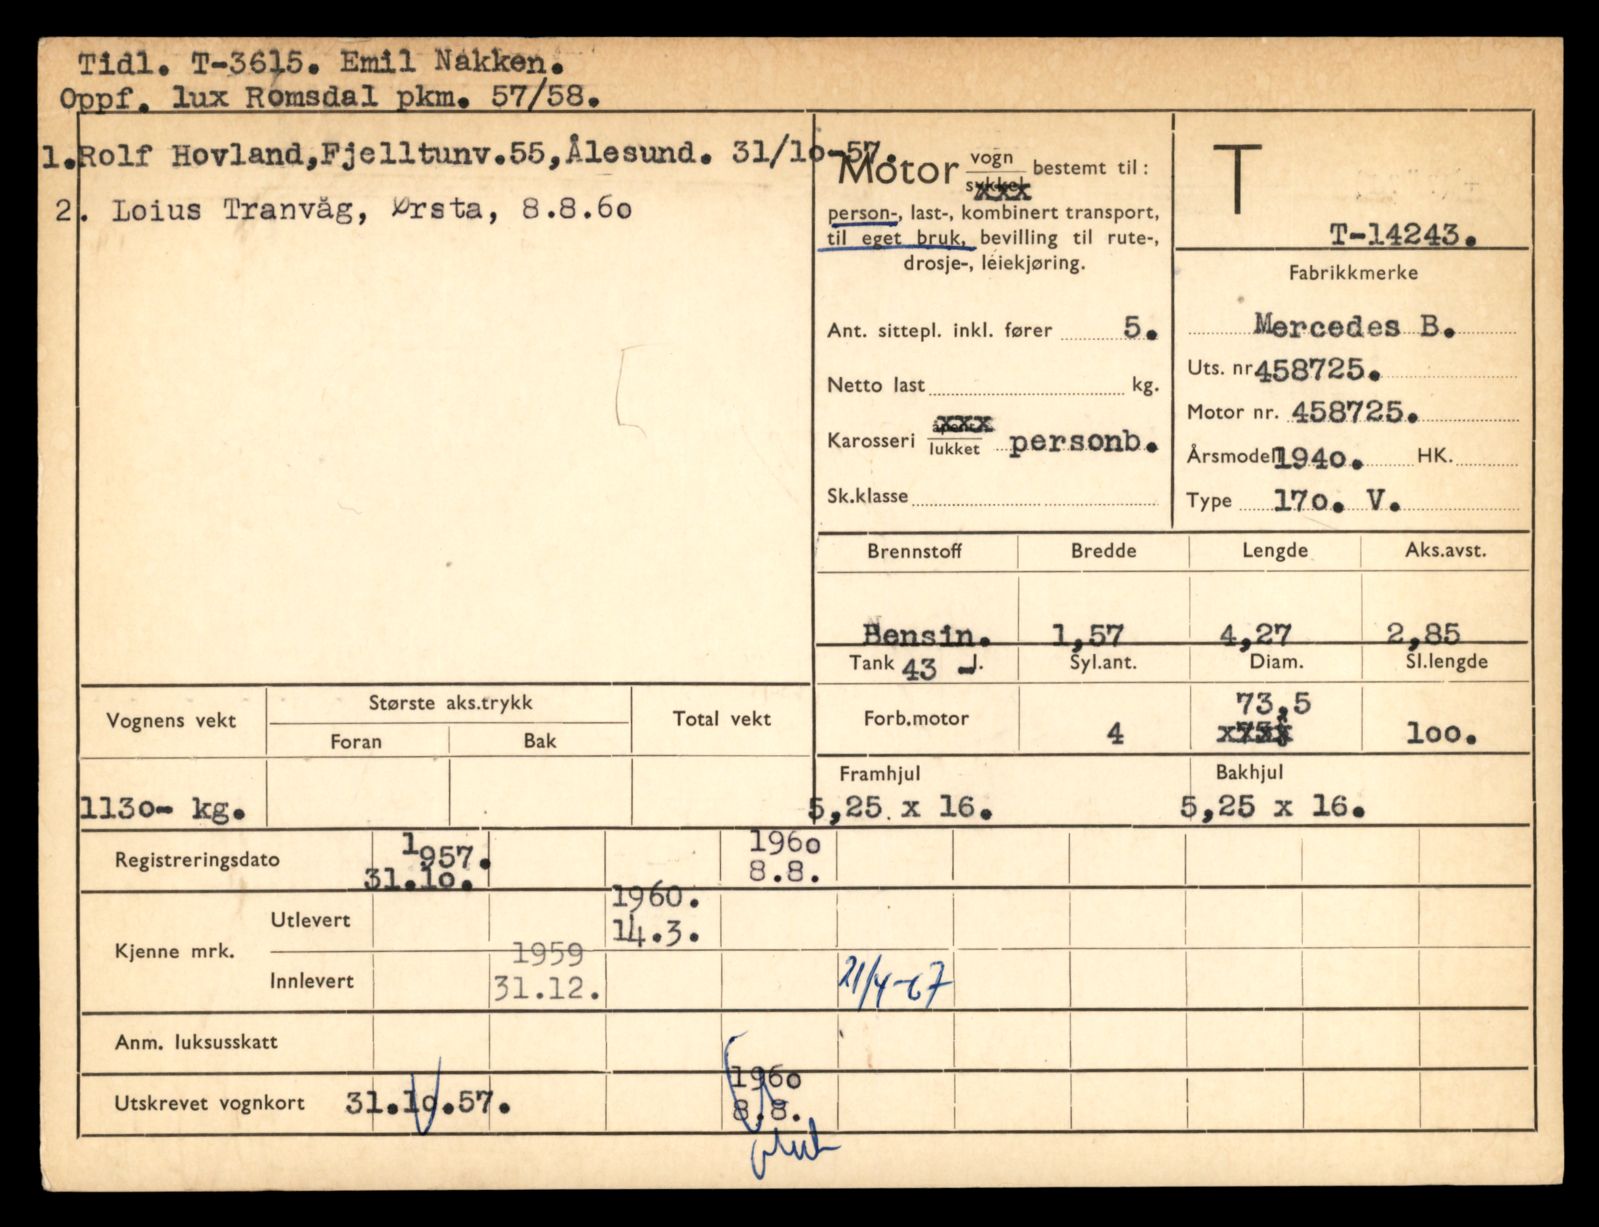 Tidl. T-3615. Emil Nakken.
Oppf. lux Romsdal pkm. 57/58.
1.Rolf Hovland,Fjelltunv.55,Ålesund. 31/1o-57.
2. Loius Tranvåg, Ørsta, 8.8.6o
Motor vogn bestemt til:
person-, last-, kombinert transport,
til eget bruk, bevilling til rute-,
drosje-, leiekjøring.
Ant. sittepl. inkl. fører 5.
Netto last kg.
Karosseri lukket personb.
Sk.klasse
T
T-14243.
Fabrikkmerke
Mercedes B.
Uts. nr 458725.
Motor nr. 458725.
Årsmodell 194o. HK.
Type 17o. V.
Brennstoff Bredde Lengde Aks.avst.
Bensin. 1,57 4,27 2,85
Tank 43 - l. Syl.ant. Diam. Sl.lengde
73,5
Forb.motor 4 1oo.
Vognens vekt Største aks.trykk Total vekt
Foran Bak
113o- kg.
Framhjul Bakhjul
5,25 x 16. 5,25 x 16.
Registreringsdato 1957. 196o
31.1o. 8.8.
Kjenne mrk. Utlevert 1960.
14.3.
Innlevert 1959
31.12. 21/4-67
Anm. luksusskatt
Utskrevet vognkort 31.1o.57. 196o
8.8.